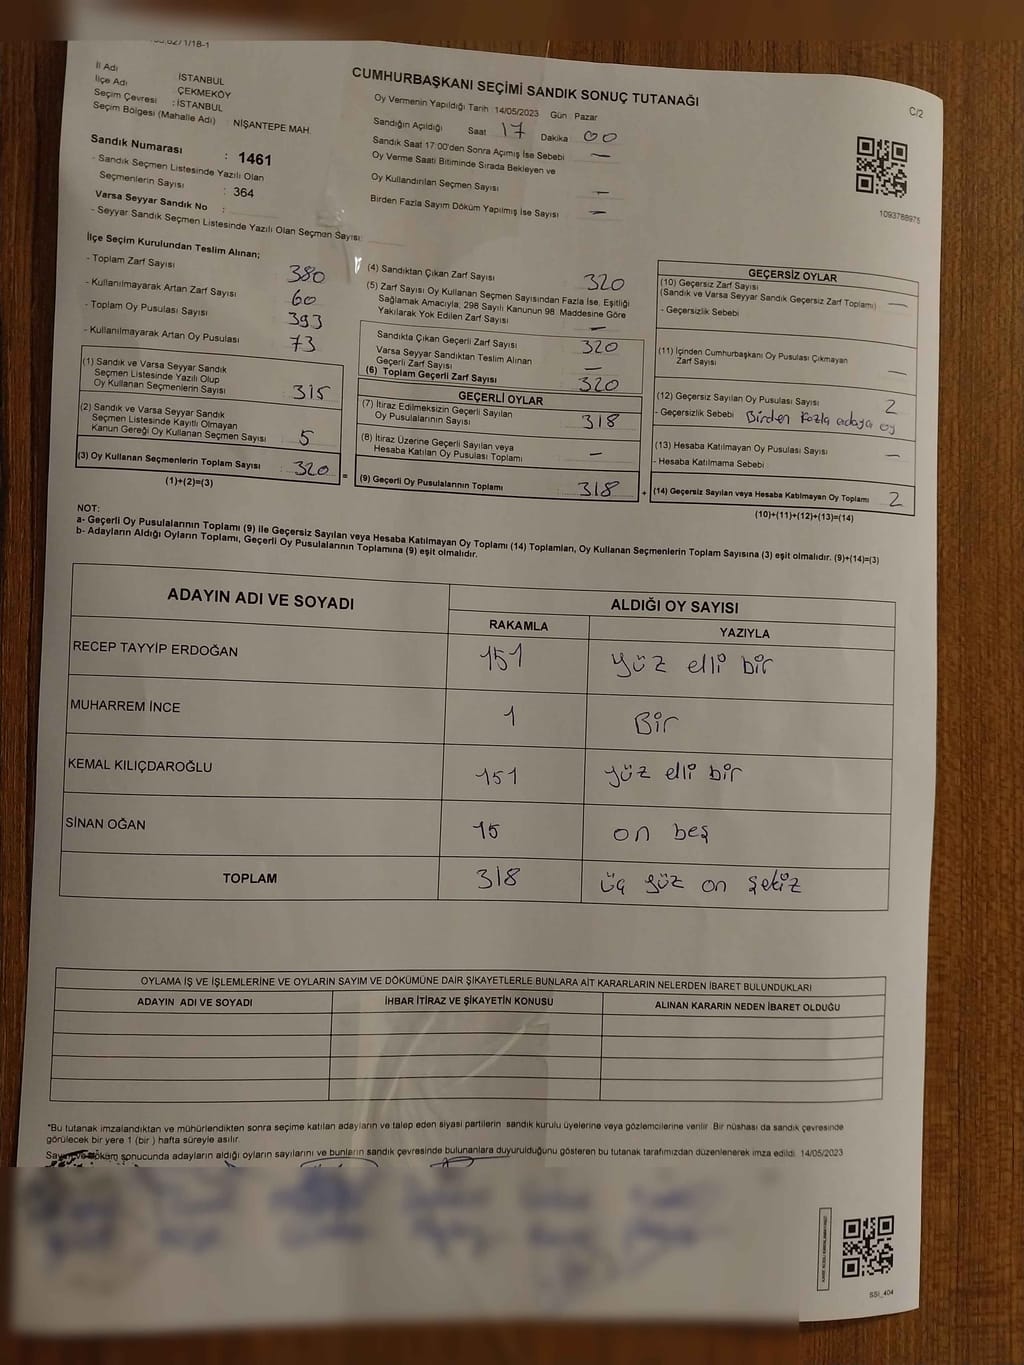 İl Adı İSTANBUL
İlçe Adı ÇEKMEKÖY
Seçim Çevresi : İSTANBUL
Seçim Bölgesi (Mahalle Adı) : NİŞANTEPE MAH.
Sandık Numarası : 1461
- Sandık Seçmen Listesinde Yazılı Olan
Seçmenlerin Sayısı : 364
Varsa Seyyar Sandık No :
- Seyyar Sandık Seçmen Listesinde Yazılı Olan Seçmen Sayısı
CUMHURBAŞKANI SEÇİMİ SANDIK SONUÇ TUTANAĞI
C/2
Oy Vermenin Yapıldığı Tarih : 14/05/2023 Gün : Pazar
Sandığın Açıldığı Saat 17 Dakika 00
Sandık Saat 17:00'den Sonra Açımış İse Sebebi —
Oy Verme Saati Bitiminde Sırada Bekleyen ve
Oy Kullandırılan Seçmen Sayısı —
Birden Fazla Sayım Döküm Yapılmış İse Sayısı —
1093788975
İlçe Seçim Kurulundan Teslim Alınan;
- Toplam Zarf Sayısı 380
- Kullanılmayarak Artan Zarf Sayısı 60
- Toplam Oy Pusulası Sayısı 393
- Kullanılmayarak Artan Oy Pusulası 73
(1) Sandık ve Varsa Seyyar Sandık
Seçmen Listesinde Yazılı Olup
Oy Kullanan Seçmenlerin Sayısı : 315
(2) Sandık ve Varsa Seyyar Sandık
Seçmen Listesinde Kayıtlı Olmayan
Kanun Gereği Oy Kullanan Seçmen Sayısı : 5
(3) Oy Kullanan Seçmenlerin Toplam Sayısı : 320 =
(1)+(2)=(3)
(4) Sandıktan Çıkan Zarf Sayısı 320
(5) Zarf Sayısı Oy Kullanan Seçmen Sayısından Fazla İse, Eşitliği
Sağlamak Amacıyla; 298 Sayılı Kanunun 98. Maddesine Göre
Yakılarak Yok Edilen Zarf Sayısı —
Sandıkta Çıkan Geçerli Zarf Sayısı 320
Varsa Seyyar Sandıktan Teslim Alınan
Geçerli Zarf Sayısı —
(6) Toplam Geçerli Zarf Sayısı 320
GEÇERLİ OYLAR
(7) İtiraz Edilmeksizin Geçerli Sayılan
Oy Pusulalarının Sayısı : 318
(8) İtiraz Üzerine Geçerli Sayılan veya
Hesaba Katılan Oy Pusulası Toplamı : —
(9) Geçerli Oy Pusulalarının Toplamı : 318 +
GEÇERSİZ OYLAR
(10) Geçersiz Zarf Sayısı
(Sandık ve Varsa Seyyar Sandık Geçersiz Zarf Toplamı) —
- Geçersizlik Sebebi
(11) İçinden Cumhurbaşkanı Oy Pusulası Çıkmayan
Zarf Sayısı —
(12) Geçersiz Sayılan Oy Pusulası Sayısı 2
- Geçersizlik Sebebi Birden fazla adaya oy
(13) Hesaba Katılmayan Oy Pusulası Sayısı —
- Hesaba Katılmama Sebebi
(14) Geçersiz Sayılan veya Hesaba Katılmayan Oy Toplamı 2
(10)+(11)+(12)+(13)=(14)
NOT:
a- Geçerli Oy Pusulalarının Toplamı (9) ile Geçersiz Sayılan veya Hesaba Katılmayan Oy Toplamı (14) Toplamları, Oy Kullanan Seçmenlerin Toplam Sayısına (3) eşit olmalıdır. (9)+(14)=(3)
b- Adayların Aldığı Oyların Toplamı, Geçerli Oy Pusulalarının Toplamına (9) eşit olmalıdır.
ADAYIN ADI VE SOYADI ALDIĞI OY SAYISI
RAKAMLA YAZIYLA
RECEP TAYYİP ERDOĞAN 151 yüz elli bir
MUHARREM İNCE 1 Bir
KEMAL KILIÇDAROĞLU 151 yüz elli bir
SİNAN OĞAN 15 on beş
TOPLAM 318 üç yüz on şekiz
OYLAMA İŞ VE İŞLEMLERİNE VE OYLARIN SAYIM VE DÖKÜMÜNE DAİR ŞİKAYETLERLE BUNLARA AİT KARARLARIN NELERDEN İBARET BULUNDUKLARI
ADAYIN ADI VE SOYADI İHBAR İTİRAZ VE ŞİKAYETİN KONUSU ALINAN KARARIN NEDEN İBARET OLDUĞU
*Bu tutanak imzalandıktan ve mühürlendikten sonra seçime katılan adayların ve talep eden siyasi partilerin sandık kurulu üyelerine veya gözlemcilerine verilir. Bir nüshası da sandık çevresinde
görülecek bir yere 1 (bir ) hafta süreyle asılır.
Sayım ve döküm sonucunda adayların aldığı oyların sayılarını ve bunların sandık çevresinde bulunanlara duyurulduğunu gösteren bu tutanak tarafımızdan düzenlenerek imza edildi. 14/05/2023
SSİ_404